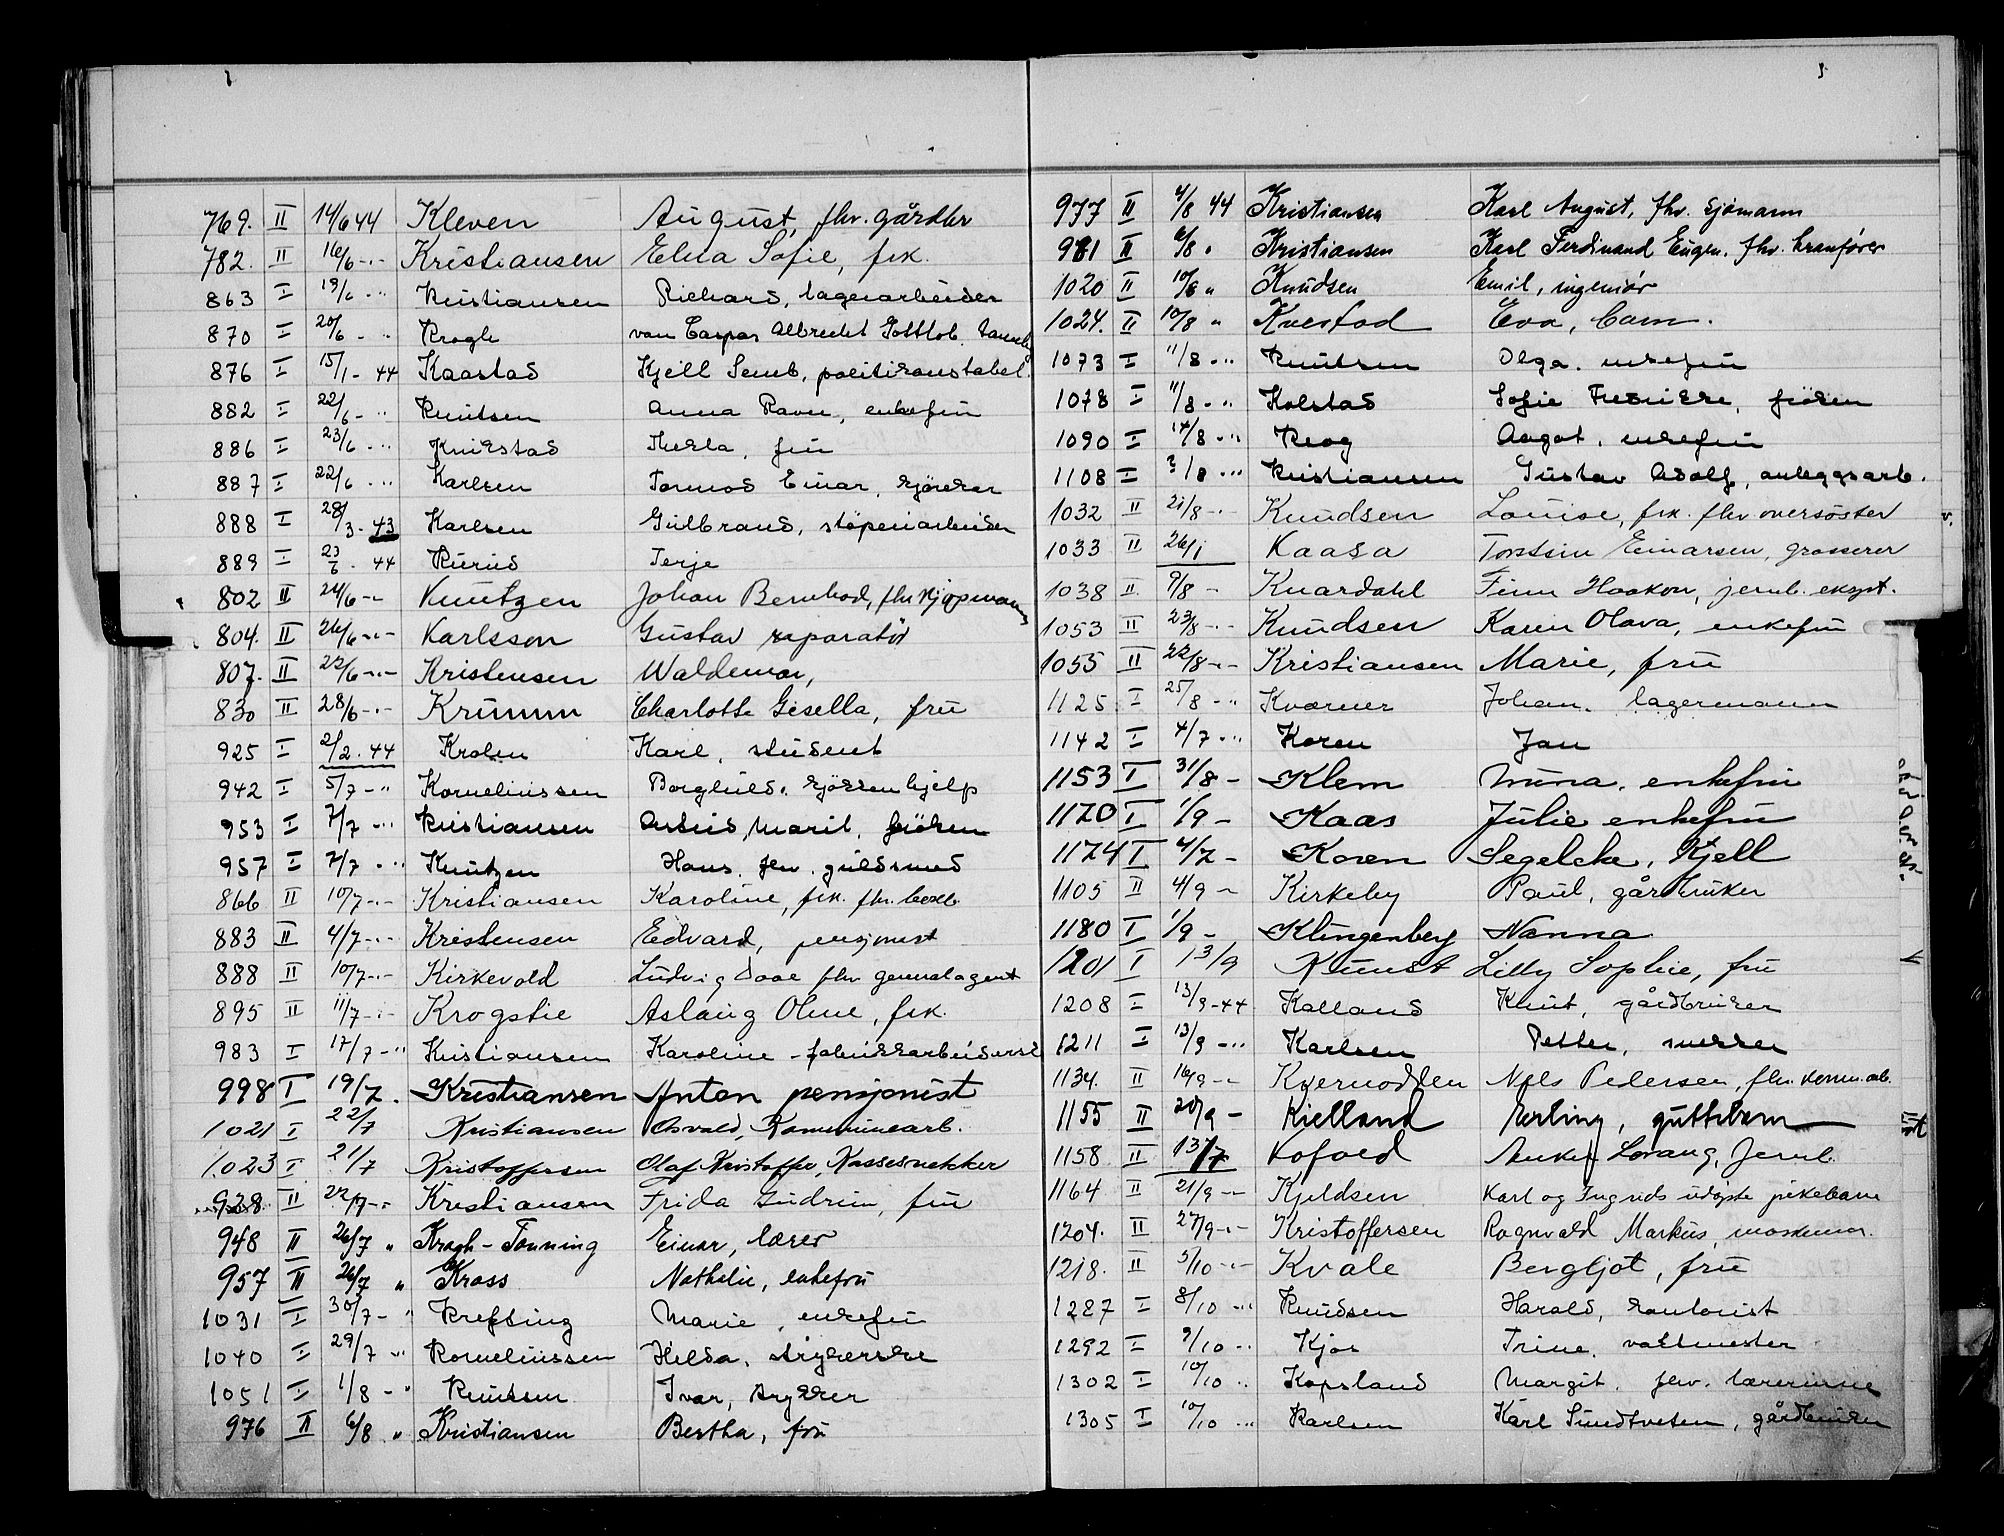 769. II 14/6 44 Kleven August, fhv. gårdbr
782. II 16/6 -"- Kristiansen Elna Sofie, frk.
863 I 19/6 -"- Kristiansen Richard, lagerarbeider
870 I 20/6 - " Krogh von Caspar Albrecht Gottlob.
876 I 15/1 - 44 Kaastad Kjell Semb, politikonstabel.
882 I 22/6 - " Knutsen Anna Ravn, enkefru
886 I 23/6 - " Knikstad Thekla, fru
887 I 22/6 - " Karlsen Tormod Einar, sjåfør
888 I 28/3 - 43 Karlsen Gulbrand, støperiarbeider
889 I 23/6 - 44 Rurud Terje
802 II 24/6 -"- Knutzen Johan Bernhard, fhv kjøpmann
804. II 26/6 -"- Karlsson Gustav reparatør
807. II 22/6 -"- Kristensen Waldemar,
830 II 28/6 -"- Krumm Charlotte Gisella, fru
925 I 2/2 . 44 Krohn Karl, student
942 I 5/7 - " Korneliussen Borghild, kjøkkenhjelp
953 I 7/7 - " Kristiansen Astrid Marit, frøken
957 I 7/7 - " Knutzen Hans, fhv. gullsmed
866 II 10/7 -"- Kristiansen Karoline, frk. fhv.
883 II 4/7 -"- Kristensen Edvard, pensjonist
888 II 10/7 -"- Kirkevold Ludvig Daae fhv generalagent
895 II 11/7 -"- Krogstie Aslaug Oline, frk.
983 I 17/7 - " Kristiansen Karoline - fabrikkarbeiderske
998 I 19/7. Kristiansen Anton pensjonist
1021 I 22/7 Kristiansen Osvald, Kommunearb.
1023 I 21/7 Kristoffersen Olaf Kristoffer, Kassesnekker
928. II 22/7 -"- Kristiansen Frida Gudrun, fru
948 II 26/7 " Kragh-Tønning Einar, lærer
957 II 26/7 " Krass Nathalie, enkefru
1031 I 30/7 - " Krefting Marie, enkefru
1040 I 29/7 " Korneliussen Hilda, strykerske
1051 I 1/8 - " Knutsen Ivar, trykker
976 II 6/8 " Kristiansen Bertha, fru
977 II 4/8 44 Kristiansen Karl August, fhv. sjømann
981 II 6/8 " Kristiansen Karl Ferdinand Eugen. fhv. kranfører
1020 II 10/8 " Knudsen Emil, ingeniør
1024. II 10/8 " Kvestad Eva, barn.
1073 I 11/8 - " Knutsen Olga. enkefru
1078 I 11/8 - " Kolstad Sofie Fredrikke, frøken
1090 I 14/8 - " Krog Aagot, enkefru
1108 I 3/8 - " Kristiansen Gustav Adolf, anleggsarb.
1032 II 21/8 -"- Knudsen Louise, frk. fhv oversøster
1033 II 26/1 Kaasa Torstein Einarsen, grosserer
1038 II 9/8 - Knardahl Finn Haakon, jernb. eksp.
1053 II 23/8 -"- Knudsen Karen Olava, enkefru
1055 II 22/8 -"- Kristiansen Marie, fru
1125 I 25/8 - " Kværner Johan. lagermann
1142 I 4/7 - " Koren Jan
1153 I 31/8 - Klem Minna, enkefru
1170 I 1/9 - Kaas Julie enkefru
1174 I 4/7 - Koren Segelcke, Kjell
1105 II 4/9 - Kirkeby Paul, gårdbruker
1180 I 1/9 - Klingenberg Nanna
1201 I 13/9 Kunst Lilly Sophie, fru
1208 I 13/9 - 44 Kalland Knut, gårdbruker
1211 I 13/9 - " Karlsen Petter, snekker
1134. II 16/9 -"- Kvernodden Nils Pedersen, fhv. komm.arb.
1155 II 20/9 - Kielland Erling, guttebarn
1158 II 13/7 Kofoed Anker Lorang, Jernb.
1164 II 21/9 -"- Kjeldsen Karl og Ingrids udøpte pikebarn
1204. II 27/9 -"- Kristoffersen Ragnvald Markus,
1218. II 5/10 -"- Kvale Bergljot, fru
1287 I 8/10 - " Knudsen Harald, kontorist
1292 I 9/10 - " Kjos Trine, vaktmester
1302 I 10/10 " Kopsland Margit. fhv. lærerinne
1305 I 10/10 " Karlsen Karl Sundtveten, gårdbruker